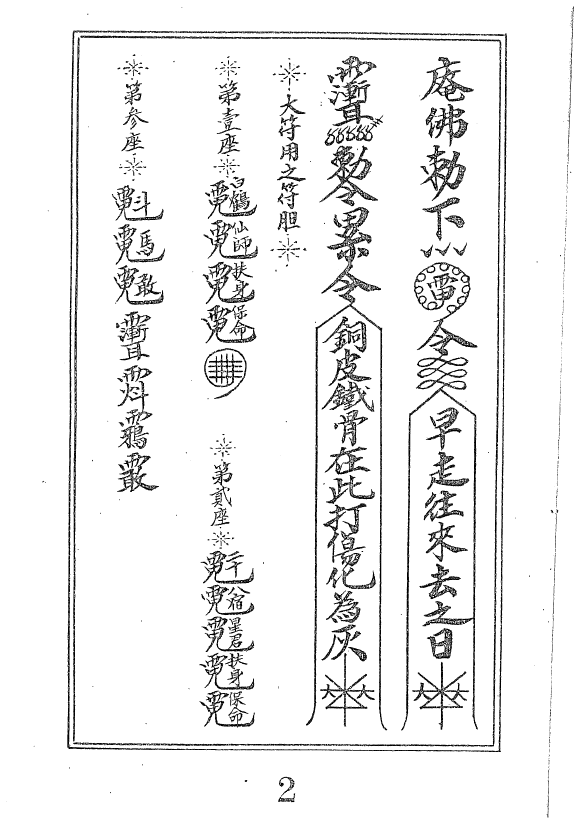 庵佛勅下雷令早走往來去之日
勅令令銅皮鐵骨在此打傷化為灰
大符用之符胆
第壹座
白鶴仙師扶身保命
第貳座
二十八宿星君扶身保命
第参座
斗馬敢
2